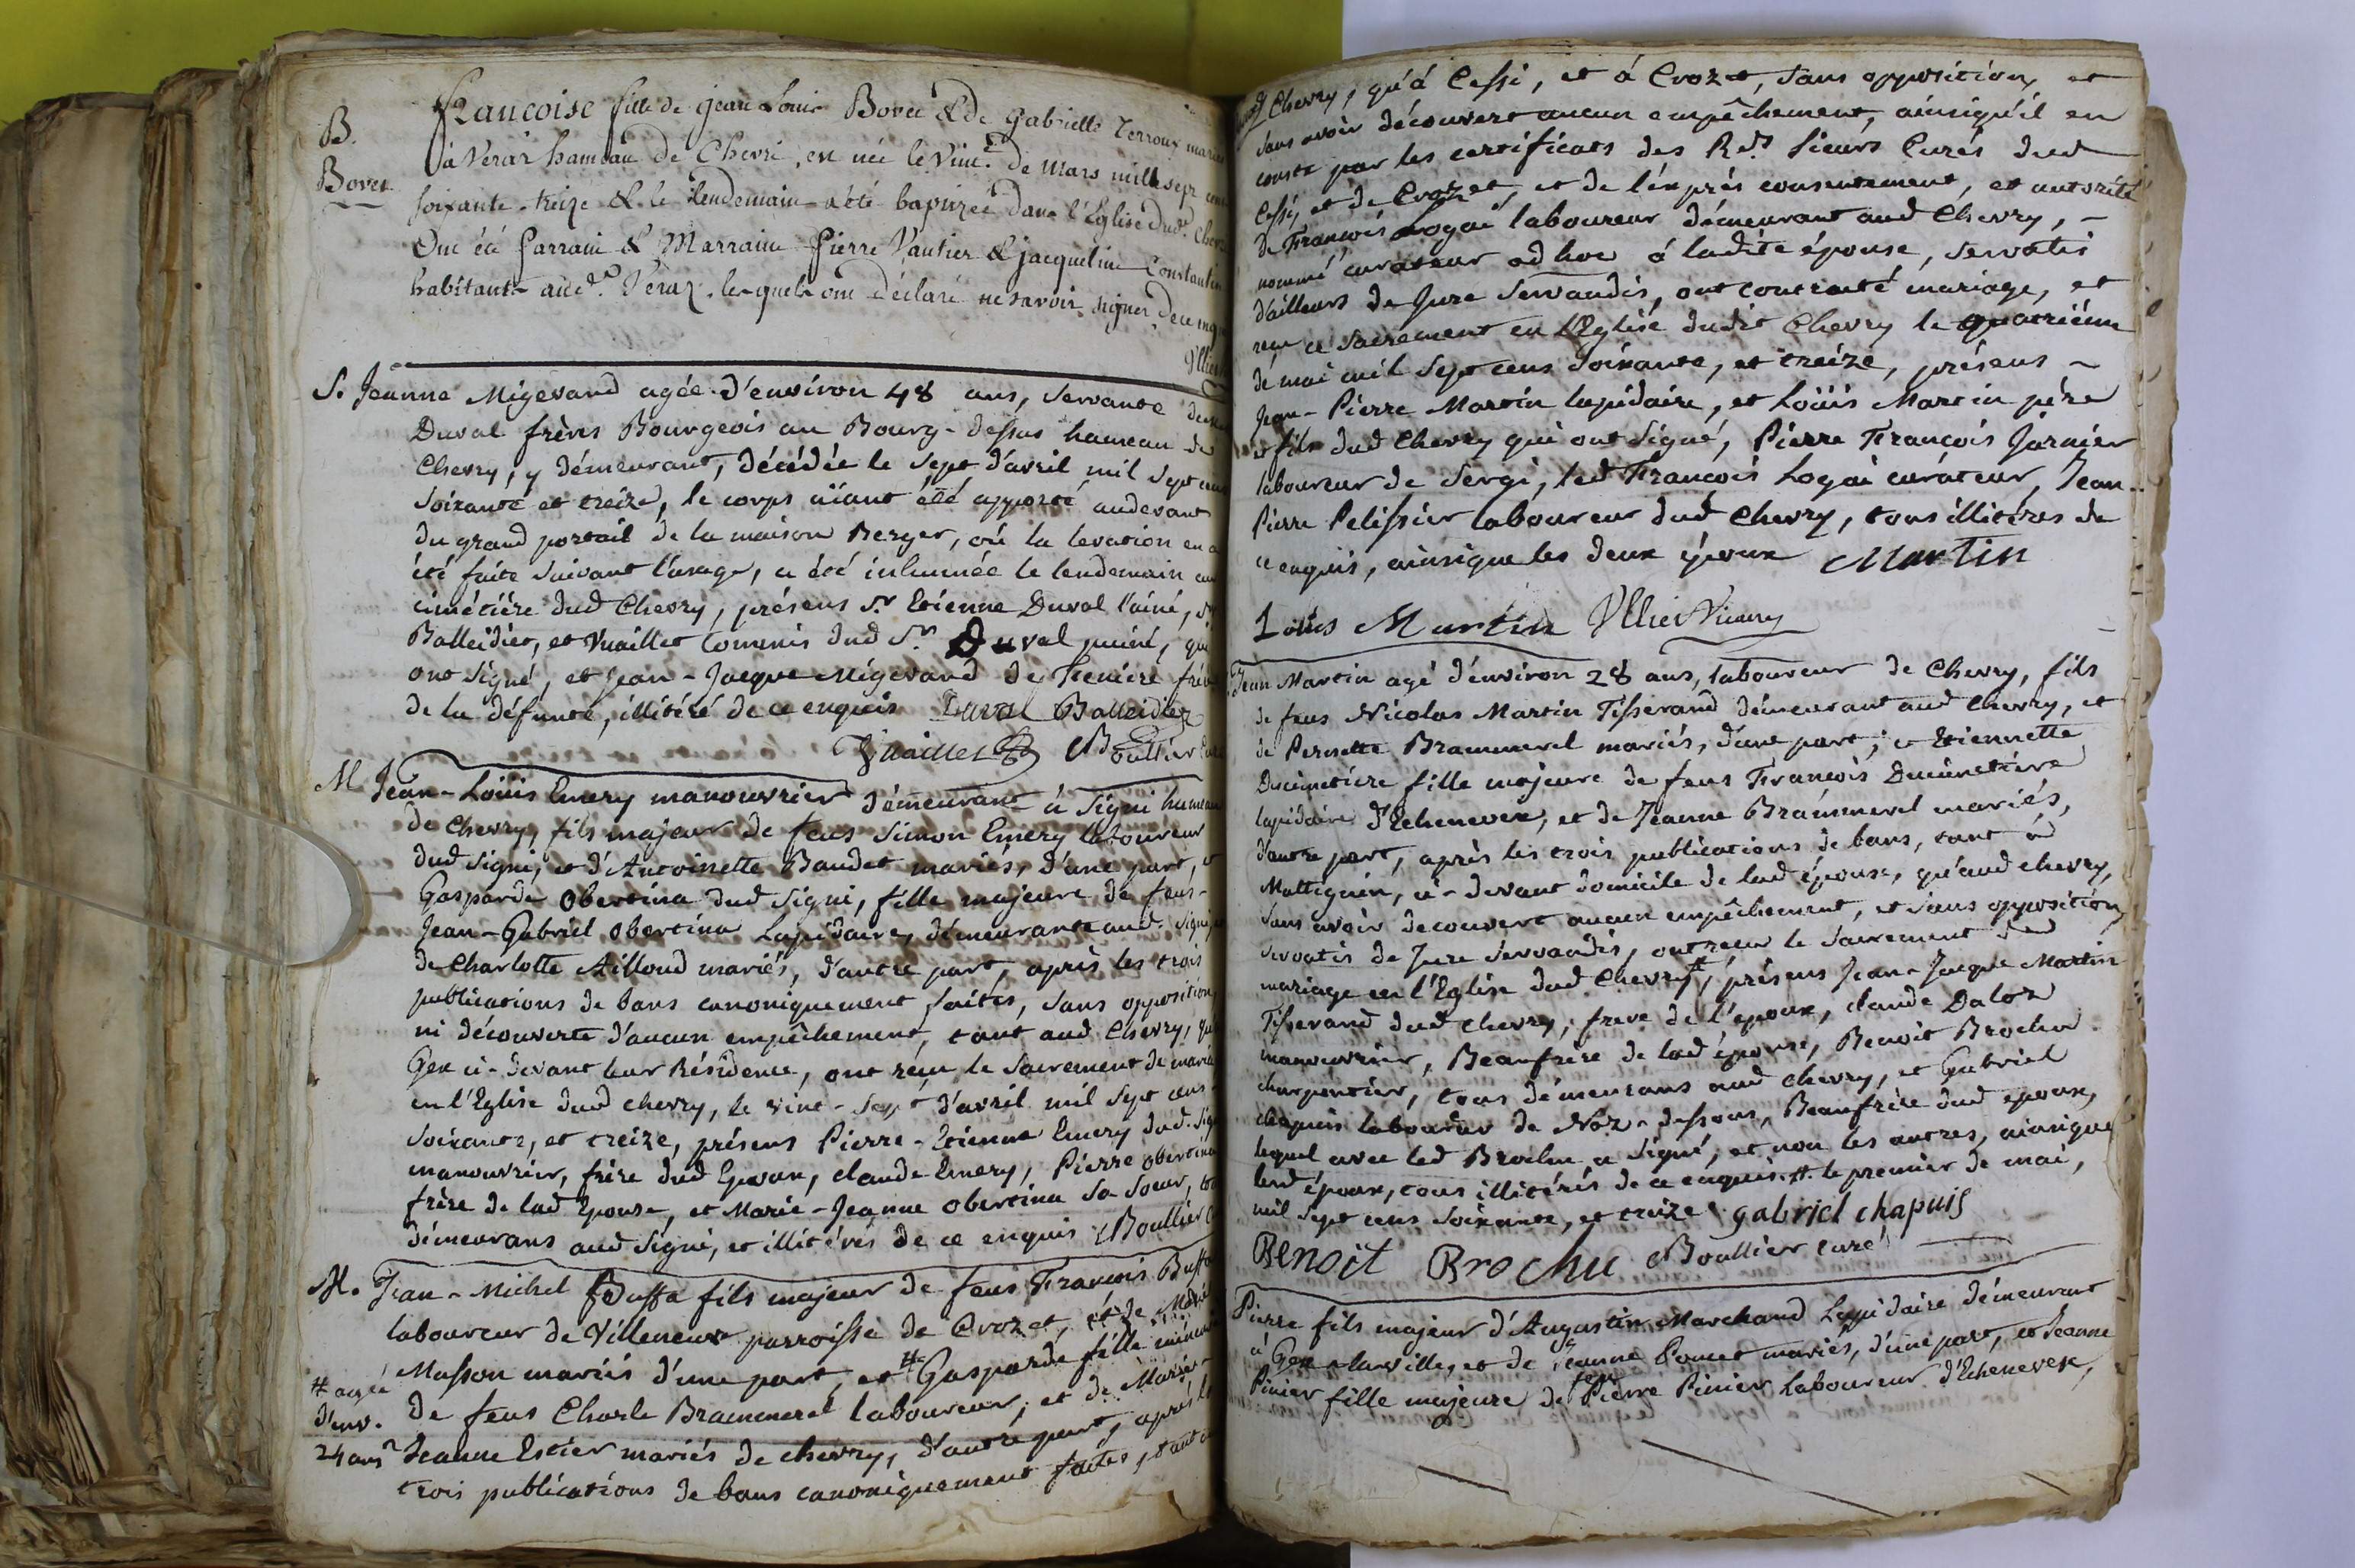 B.
Bovet
Francoise fille de jean Louis Bovet & de Gabrielle Terroux mariés
à Veraz hameau de Chevri, en née le Vint.e de mars mille sept cent
soixante-treize & le lendemain a été baptizée dans l'Eglise dud.t Chevri
Ont été Parrain & Marraine Pierre Vautier & jacqueline Constantin
habitants aud.t Veraz, lesquels ont déclaré ne savoir signer de ce enquis
S. Jeanne Migevand agée d'environ 48 ans, servante de
Duval frères Bourgeois au Bourg-dessus hameau de
Chevry, y démeurant, décédée le sept d'avril mil sept cens
soixante et treize, le corps aïant été apporté audevant
du grand portail de la maison Berger, où la levation en a
été faite suivant l'usage, a été inhumée le lendemain au
cimétiére dud Chevry, présens Sr Etienne Duval l'ainé, Sr
Balleidier, et Vuaillet Commis dud Sr. Duval puiné, qui
ont signé, et Jean-Jacque Migevand de frère
de la défunte, illitéré de ce enquis Duval Balleidier
Vuaillet Boullier
M Jean-Loüis Emery manouvrier démeurant à Signi hameau
de Chevry, fils majeur de feus Simon Emery laboureur
dud Signi, et d'Antoinette Baudet mariés, d'une part, et
Gasparde Obertina dud Signi, fille majeure de feus-
Jean-Gabriel Obertina Lapidaire, démeurante aud. Signi, et
de Charlotte Ailloud mariés, d'autre part, après les trois
publications de bans canoniquement faites, sans opposition
ni découverte d'aucun empêchement, tant aud Chevry, qu'à
Gex ci-devant leur Résidence, ont réçu le sacrement de mariage
en l'Eglise dud chevry, le vint-sept d'avril mil sept cens-
soixante, et treize, présens Pierre-Etienne Emery dud. Signi
manouvrier, frère dud Epoux, claude Emery, Pierre obertina
frère de lad Epouse, et Marie-Jeanne Obertina sa soeur, tous
démeurans aud Signi, et illitérés de ce enquis Boullier
M. Jean-Michel Buffa fils majeur de feus François Buffa
laboureur de Villeneuve parroisse de Crozet, et de Marie
Masson mariés d'une part, et # Gasparde fille mineure
# agée
d'env.
24 ans
de feus Charle Brammerel laboureur, et de Marie-
Jeanne Estier mariés de chevry, d'autre part, après les
trois publications de bans canoniquement faites, tant à
aud Chevry, qu'à Cessi, et à Crozet, sans opposition, et
sans avoir découvert aucun empêchement, ainsiqu'il en
conste par les certificats des Rds. Sieurs Curés dud
Cessi, et de Crozet, et de l'exprès consentement, et autorité
de François Logai laboureur démeurant aud Chevry, -
nommé curateur ad hoc à ladite épouse, servatis
d'ailleurs de Jure servandis, ont contracté mariage, et
reçu ce sacrement en L'Eglise dudit Chevry le quatriéme
de mai mil sept cens soixante, et treize, présens -
Jean-Pierre Martin lapidaire, et Loüis Martin père
et fils dud Chevry qui ont signé, Pierre François Jarnier
laboureur de Sergi, led François Logai curateur, Jean-
Pierre Pelissier laboureur dud Chevry, tous illitérés de
ce enquis, ainsique les deux époux Martin
Louis Martin Ullier Vicaire
Jean Martin agé d'environ 28 ans, laboureur de Chevry, fils
de feus Nicolas Martin Tisserand démeurant aud Chevry, et
de Pernette Brammerel mariés, d'une part; et Etiennette
Ducimetiére fille majeure de feus François Ducimetiére
lapidaire d'Echenevex, et de Jeanne Brammerel mariés,
d'autre part, après les trois publications de bans, tant à
Mattignin, ci-devant domicile de lad épouse, qu'aud chevry,
sans avoir decouvert aucun empêchement, et sans opposition,
servatis de Jure servandis, ont reçu le sacrement de
mariage en l'Eglise dud Chevry #, présens Jean-Jacque Martin
Tisserand dud chevry, frere de l'epoux, claude Daloz
manouvrier, Beaufrère de lad épouse, Benoit Brochu
charpentier, tous démeurans aud chevry, et Gabriel
chapuis laboureur de Noz-dessous, Beaufrère dud epoux,
lequel avec led Brochu a signé, et non les autres, ainsique
lesd époux, tous illitérés de ce enquis. # le premier de mai,
mil sept cens soixante, et treize gabriel chapuis
Benoit Brochu Boullier curé
Pierre fils majeur d'Augustin Marchand Lapidaire démeurant
à Gex-la-ville, et de Jeanne Poncet mariés, d'une part, et Jeanne
Pinier fille majeure de feu Pierre Pinier laboureur d'Echenevex,